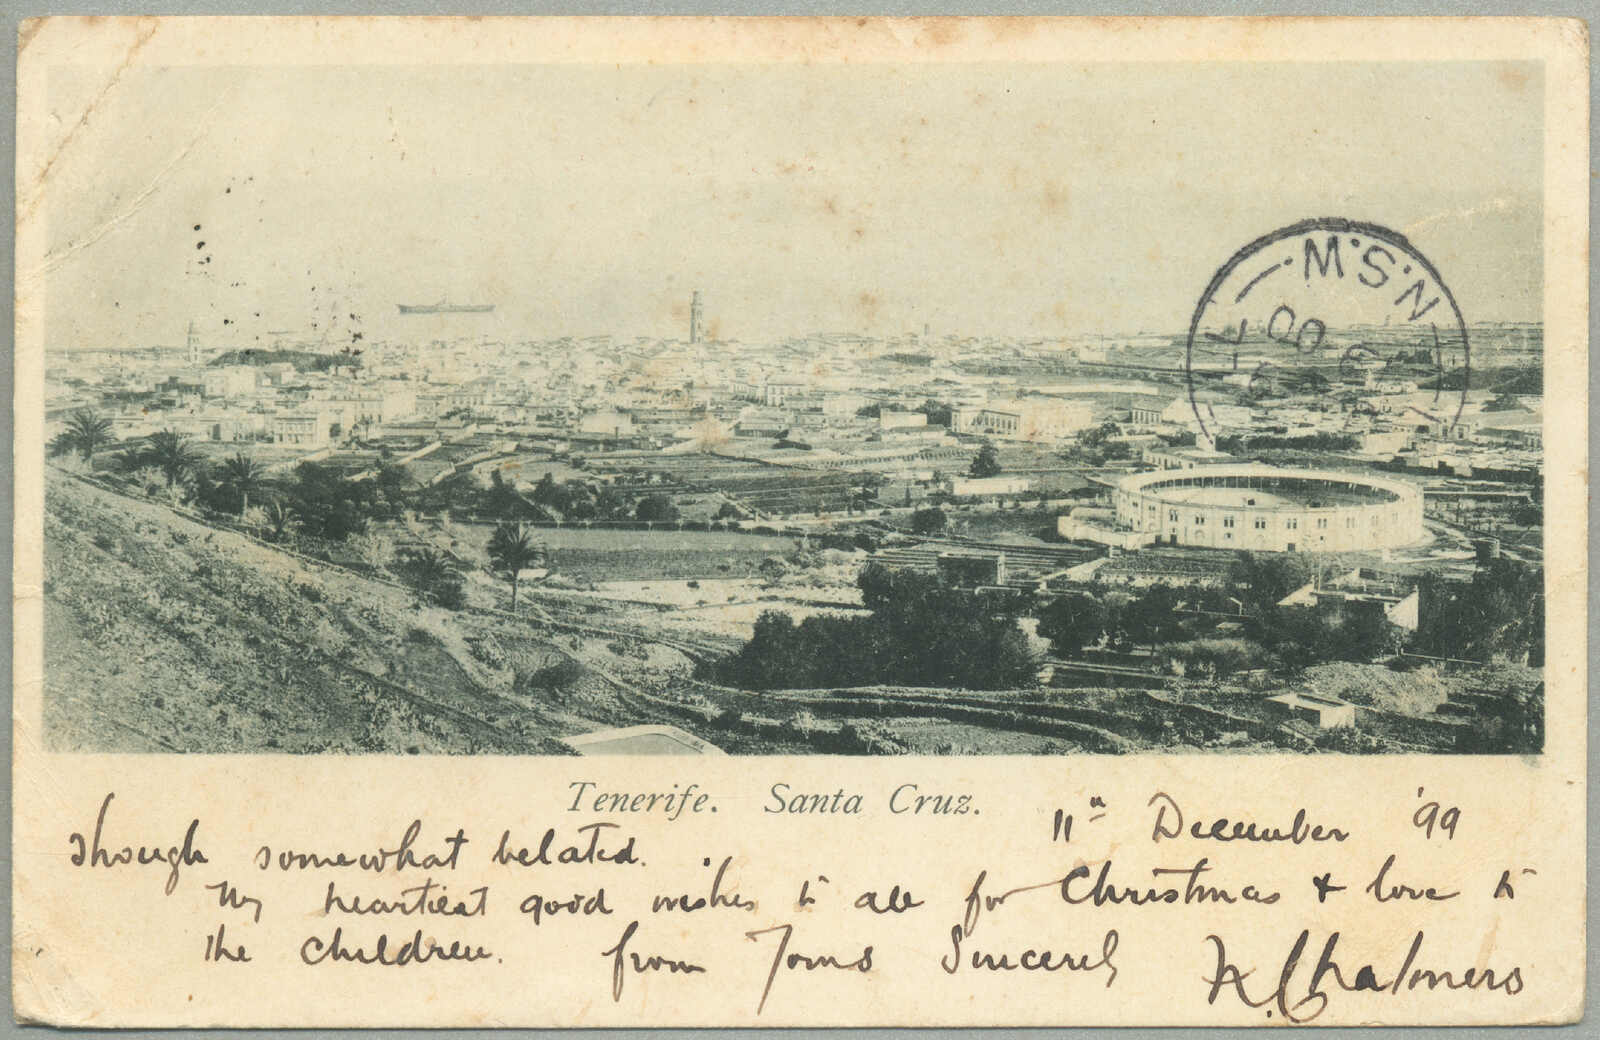 N.S.W.
Tenerife. Santa Cruz.
11th December '99
Though somewhat belated.
My heartiest good wishes to all for Christmas & love to
the children. from Yours Sincerely Chalmers